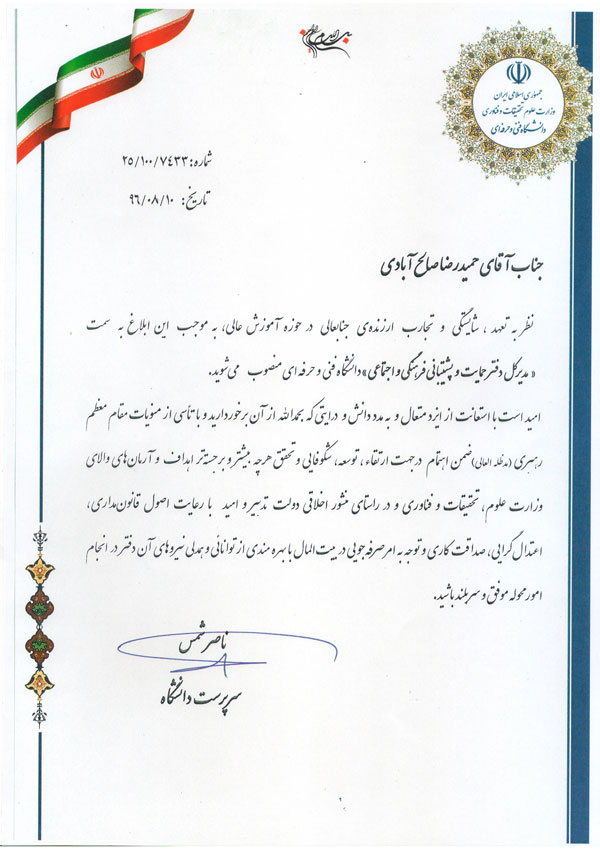 جمهوری اسلامی ایران
وزارت علوم تحقیقات و فناوری
دانشگاه فنی و حرفه‌ای
شماره: ۲۵/۱۰۰/۷۴۳۳
تاریخ: ۹۶/۰۸/۱۰
جناب آقای حمیدرضا صالح آبادی
نظر به تعهد ، شایستگی و تجارب ارزنده‌ی جنابعالی در حوزه آموزش عالی، به موجب این ابلاغ به سمت
« مدیرکل دفتر حمایت و پشتیبانی فرهنگی و اجتماعی» دانشگاه فنی و حرفه ای منصوب می‌شوید.
امید است با استعانت از ایزد متعال و به مدد دانش و درایتی که بحمدالله از آن برخوردارید و با تأسی از منویات مقام معظم
رهبری (مدظله العالی) ضمن اهتمام در جهت ارتقاء ، توسعه، شکوفایی و تحقق هرچه بیشتر و برجسته تر اهداف و آرمان‌های والای
وزارت علوم، تحقیقات و فناوری و در راستای منشور اخلاقی دولت تدبیر و امید با رعایت اصول قانون‌مداری،
اعتدال گرایی، صداقت کاری و توجه به امر صرفه جویی در بیت المال با بهره مندی از توانائی و همدلی نیروهای آن دفتر در انجام
امور محوله موفق و سربلند باشید.
ناصر شمس
سرپرست دانشگاه